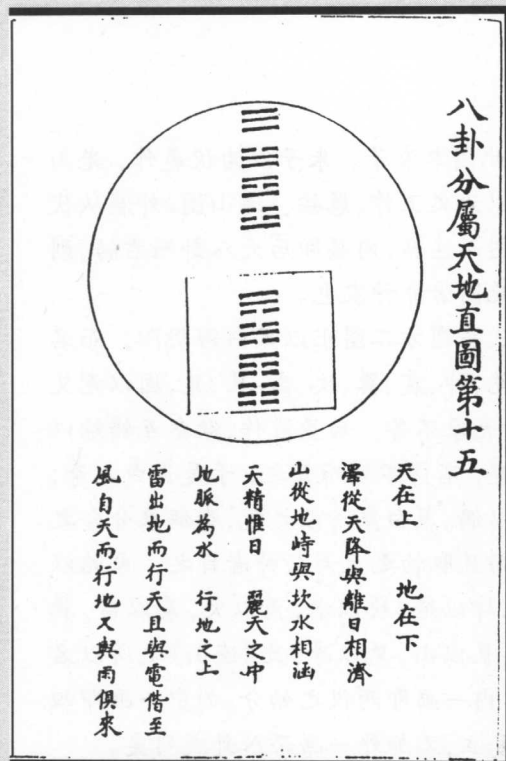 八卦分屬天地直圖第十五
天在上　地在下
澤從天降與離日相濟
山從地峙與坎水相涵
火精惟日　麗天之中
地脈為水　行地之上
雷出地而行天且與電偕至
風自天而行地又與雨俱來